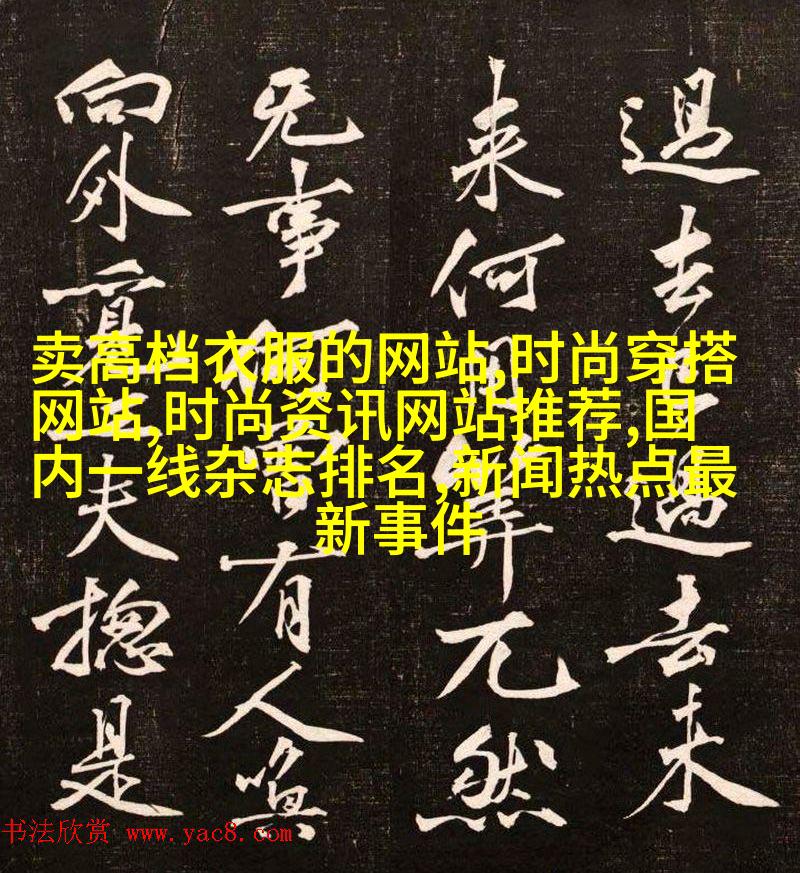 過去過去未
来何用筭兀然
无事何曾有人喚
向外覓工夫揔是
卖高档衣服的网站,时尚穿搭
网站,时尚资讯网站推荐,国
内一线杂志排名,新闻热点最
新事件
书法欣赏 www.yac8.com